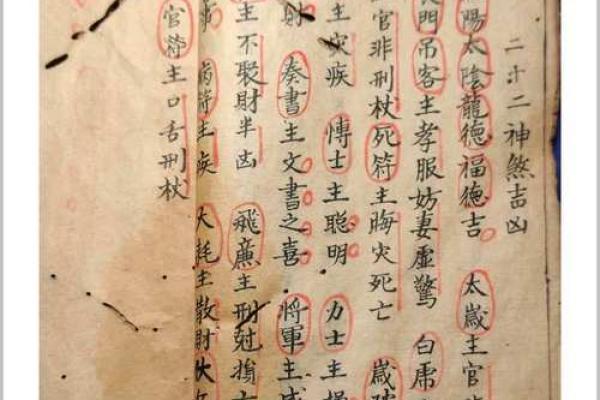 二十二神煞吉凶
陽太陰龍德福德吉 太歲主官
門吊客主孝服妨妻虛驚 白虎
官非刑杖死符主晦灾死亡 歲
主灾疾 博士主聰明 力士主
財 奏書主文書之喜 將軍主
主不聚財半凶 飛廉主刑尅損
病符主疾 大耗主散財伏
官符主口舌刑杖